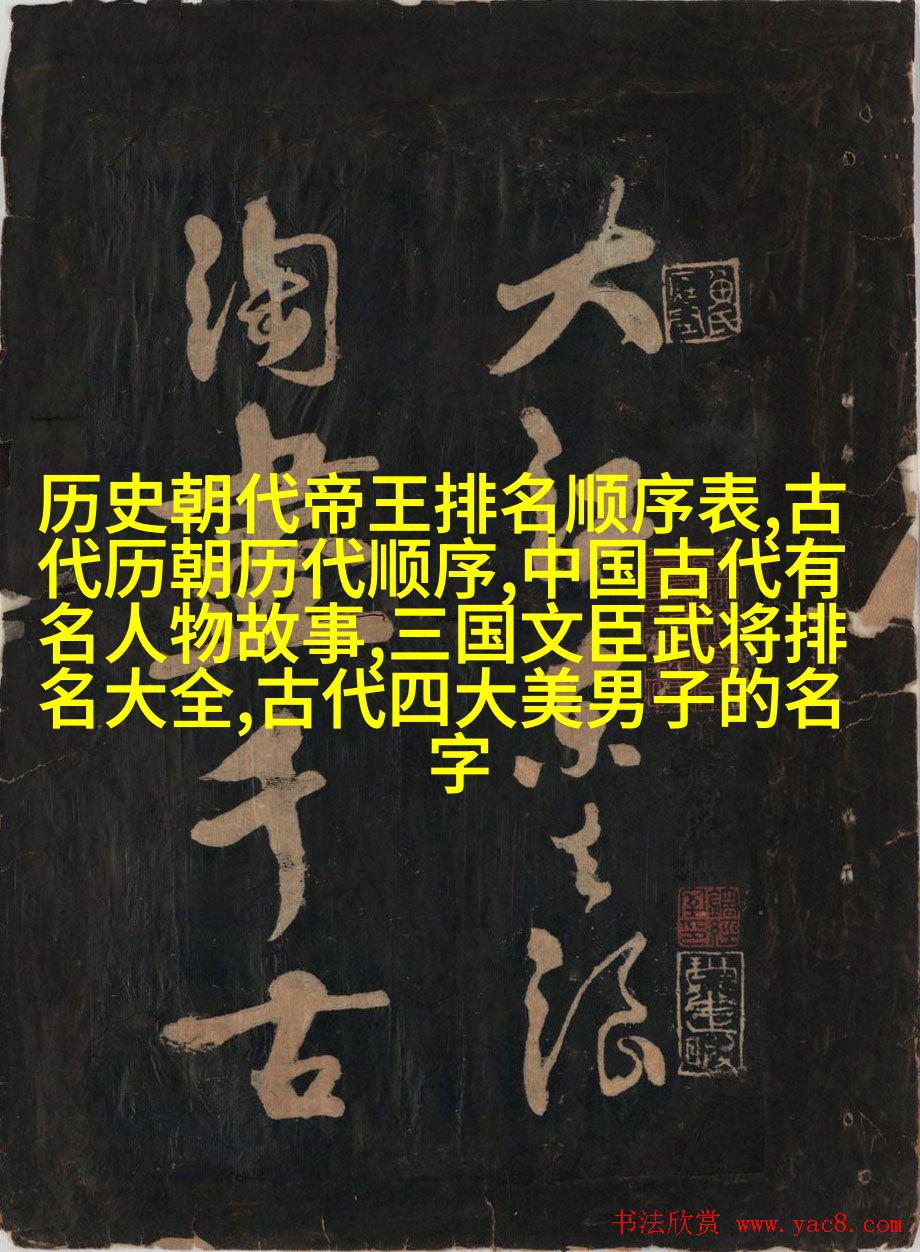 大江東去浪
淘盡千古
历史朝代帝王排名顺序表,古
代历朝历代顺序,中国古代有
名人物故事,三国文臣武将排
名大全,古代四大美男子的名
字
书法欣赏 www.yac8.com